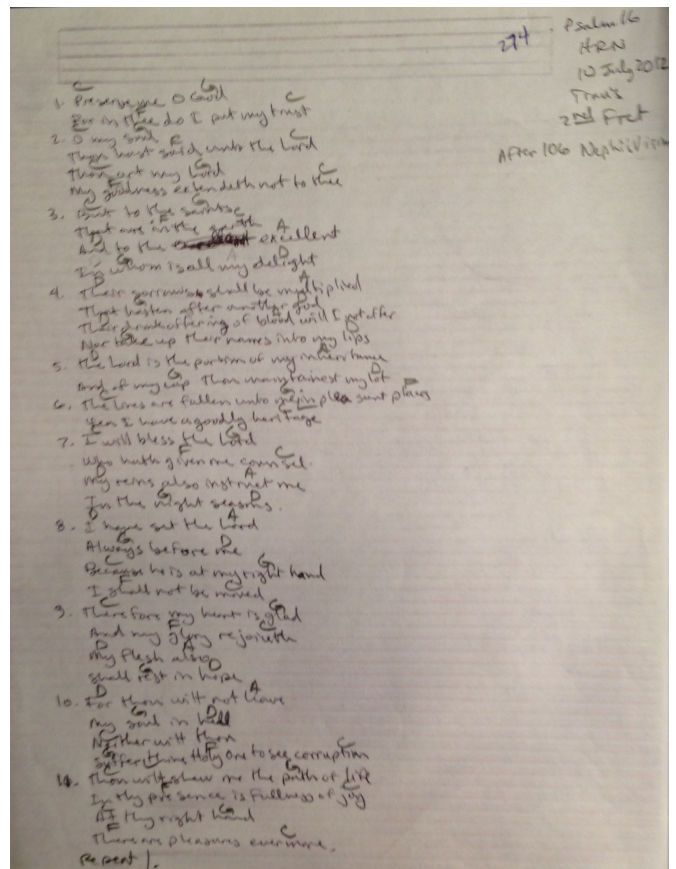 274
Psalm 16
HRN
10 July 2012
Travis
2nd Fret
After 106 Nephi Vision
C G
1. Preserve me O God
F C
For in thee do I put my trust
C G
2. O my soul
F C
Thou hast said unto the Lord
C G
Thou art my Lord
F C
My goodness extendeth not to thee
C G
3. But to the saints
F C
That are in the earth
D A
And to the excellent
G D
In whom is all my delight
D A
4. Their sorrows shall be multiplied
G D
That hasten after another god
Their drink offering of blood will I not offer
Nor take up their names into my lips
5. The Lord is the portion of my inheritance
And of my cup Thou maintainest my lot
6. The lines are fallen unto me in pleasant places
Yea I have a goodly heritage
7. I will bless the Lord
F C
Who hath given me counsel
D A
My reins also instruct me
G D
In the night seasons.
D A
8. I have set the Lord
G D
Always before me
C G
Because he is at my right hand
F C
I shall not be moved
C G
9. Therefore my heart is glad
F C
And my glory rejoiceth
D A
My flesh also
G D
Shall rest in hope
D A
10. For thou wilt not leave
G D
My soul in hell
C G
Neither wilt thou
F C
Suffer thine Holy One to see corruption
C G
11. Thou wilt shew me the path of life
F C
In thy presence is fullness of joy
C G
At thy right hand
F C
There are pleasures evermore.
Repeat 1.